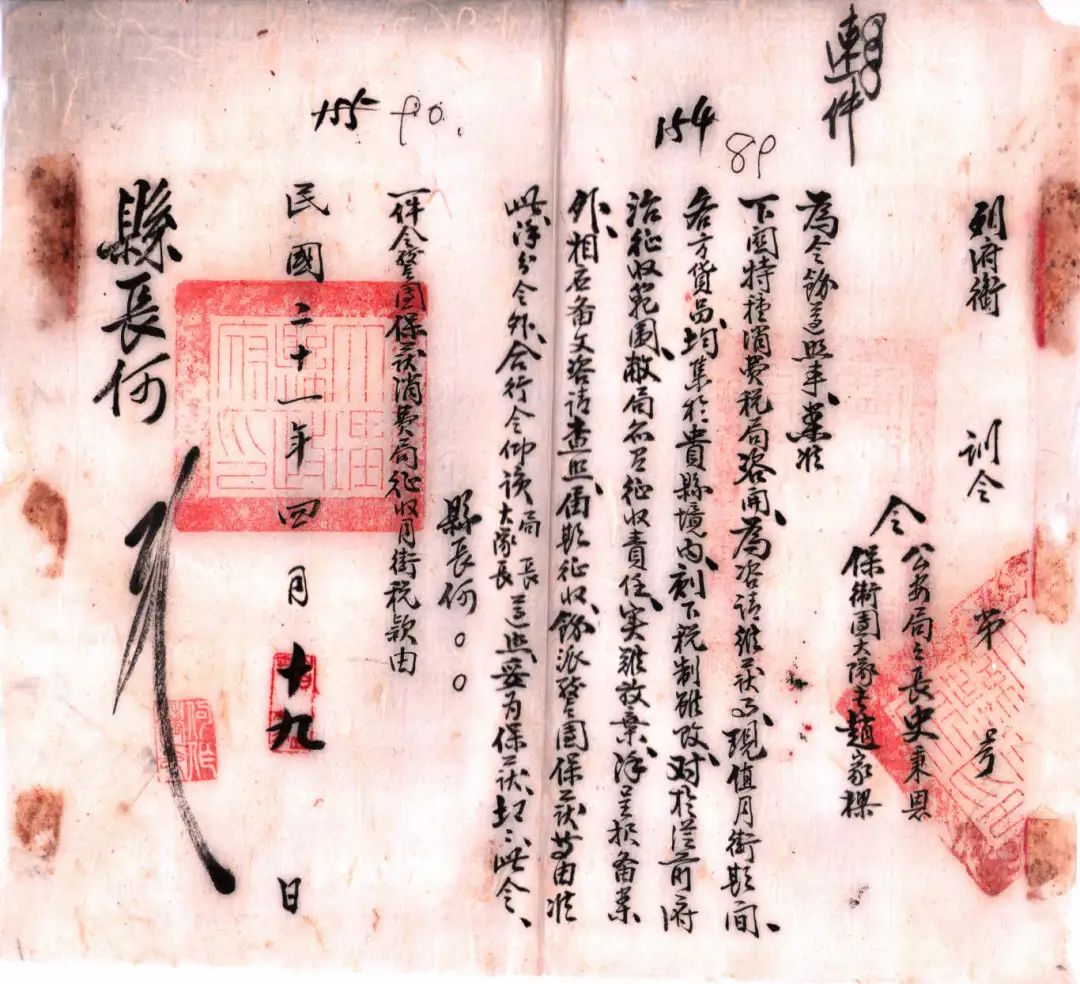 連件
到府衙 訓令 第 号
令 公安局々長史秉恩
保衛團大隊長趙家樑
為令飭遵照事、案准
下関特種消費税局咨開、為咨請維護事、現值月街期間、
各方貨品均集於貴縣境内、刻下税制雖改、対於從前府
治征收範圍、敝局名呈征收責任、实難放棄、除呈报備案
外、相应备文咨請查照、屆期征收、飭派警團保護等由准
此、除分令外、合行令仰該局長大隊長遵照妥為保護、切々此令、
縣長何○○
154
89
一件令警團保護消費局征收月街税款由
民國二十一年四月十九日
縣長何
155
90.